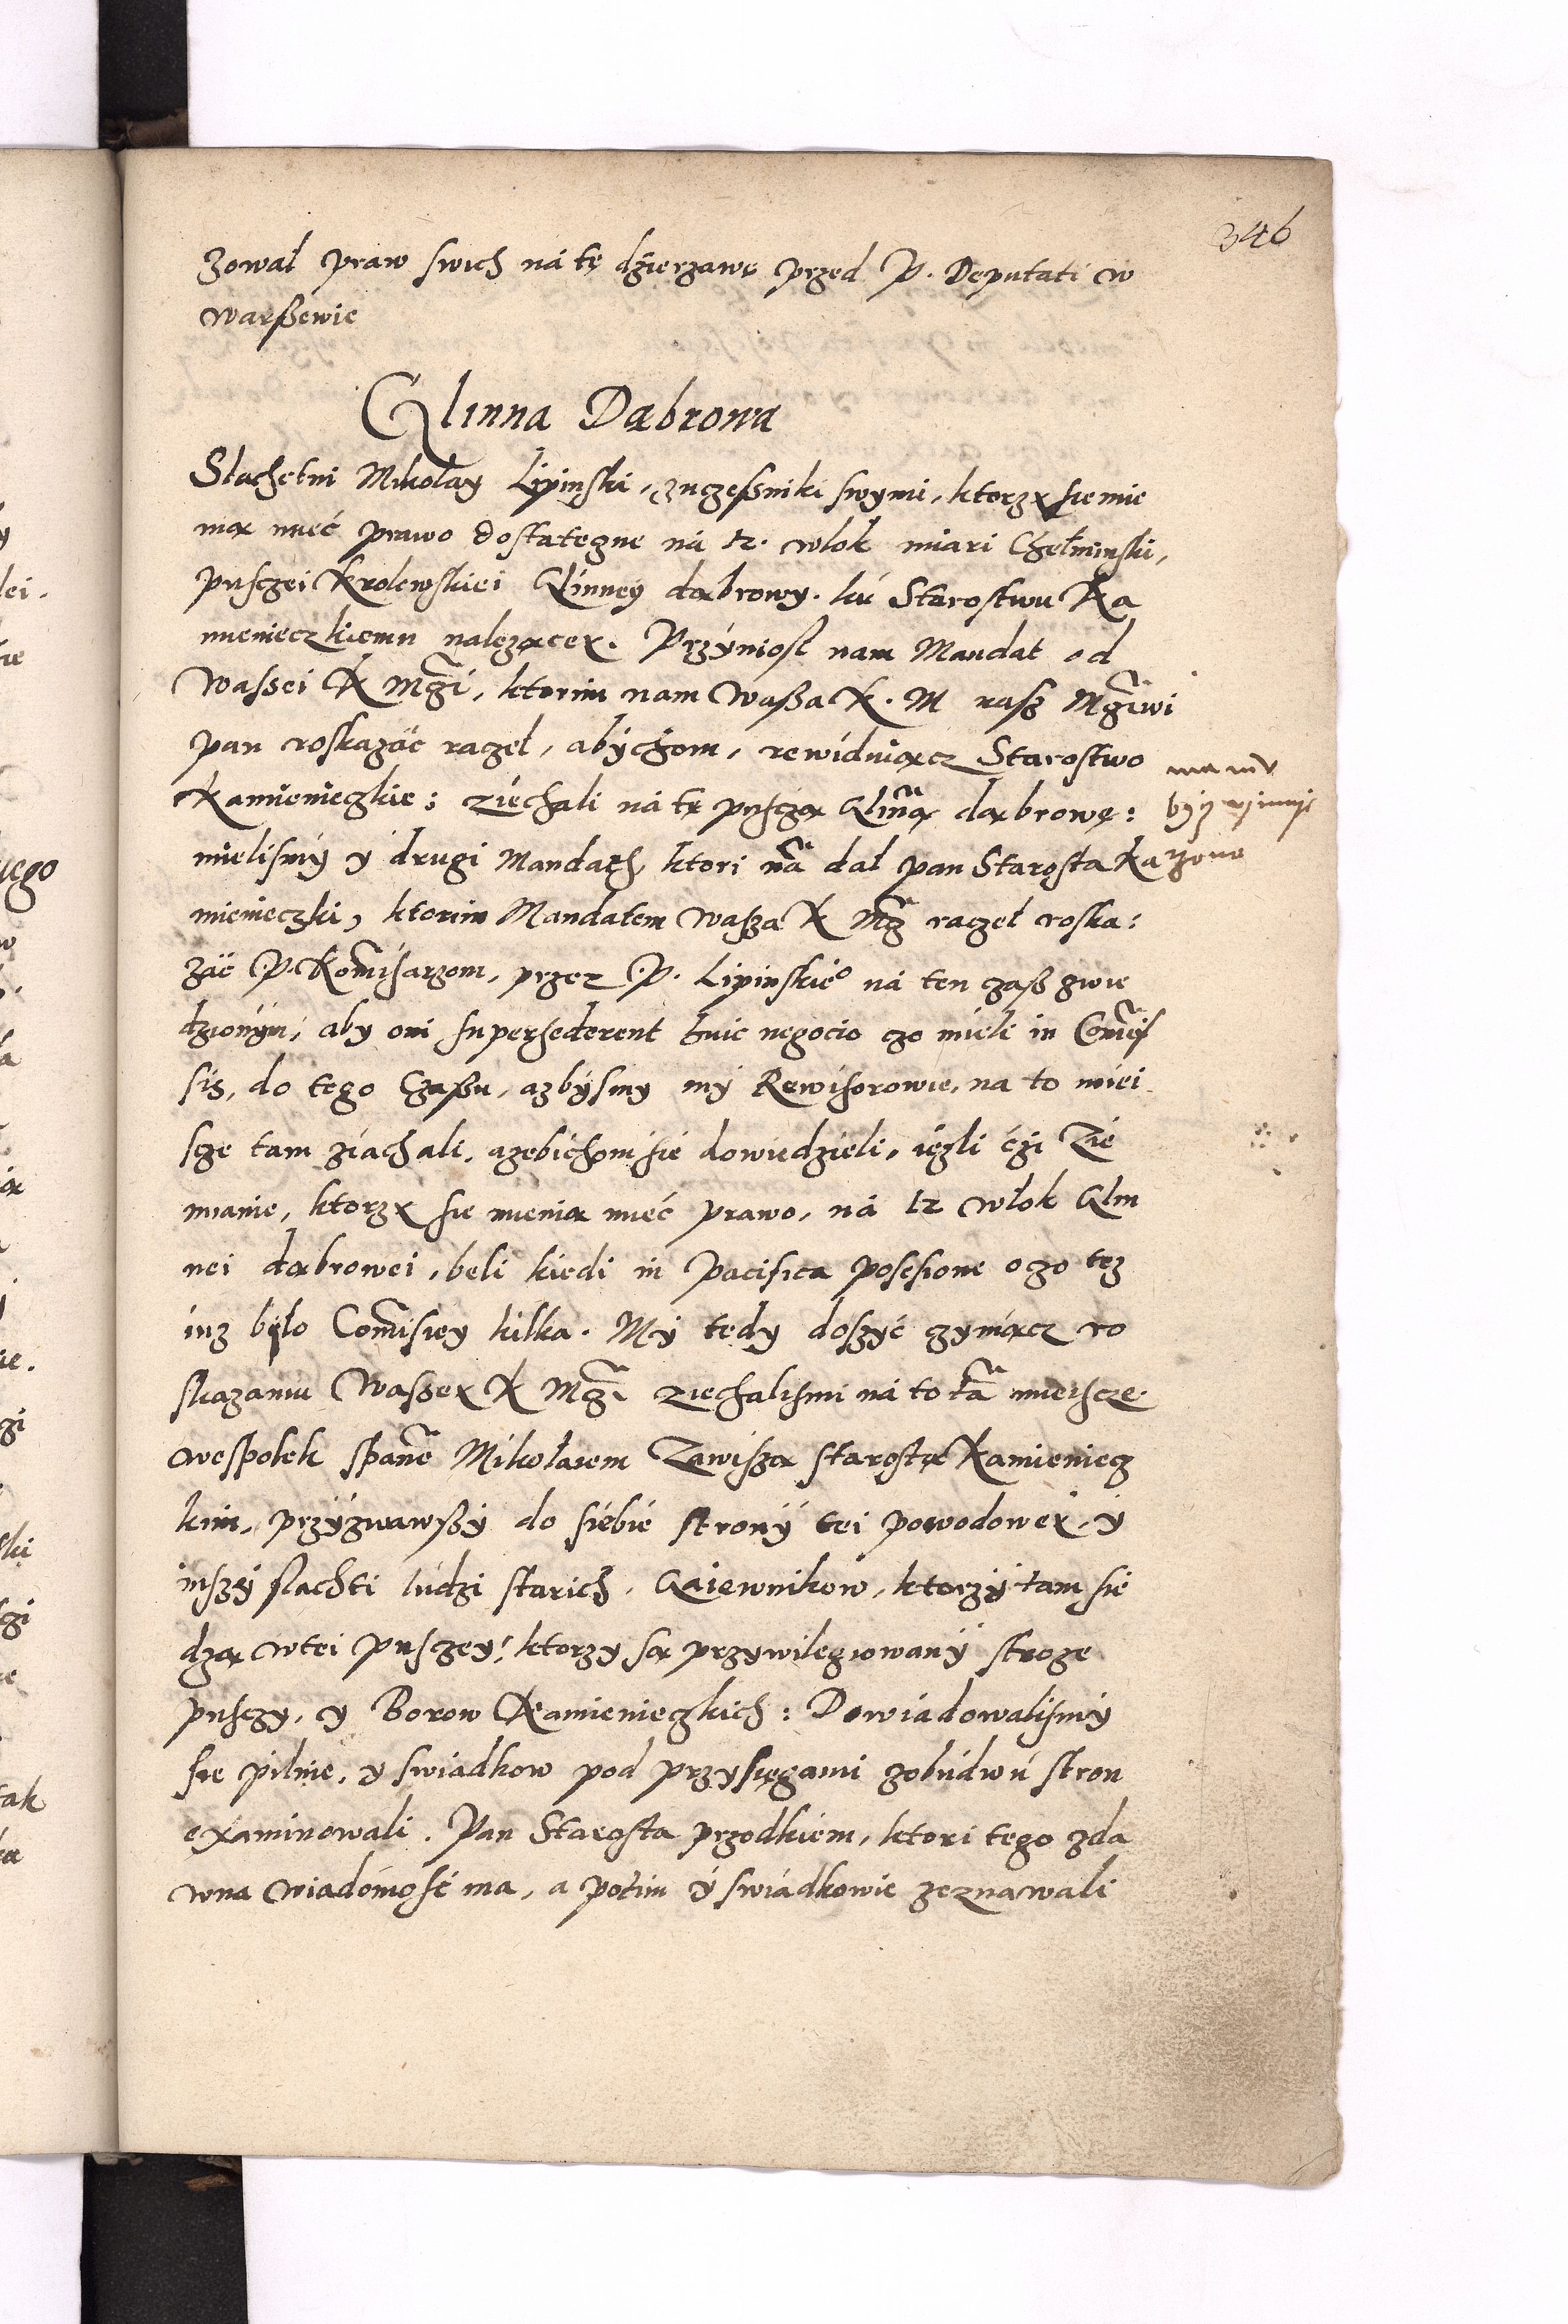 346
zował praw swich ná tę dzierzawę przed P. Deputati w
Warßewie
Glinna Dąbrowa
Slachetni Mikołay Lipinski, zuczesniki swymi, ktorzy sie mie
nią mieć prawo dostateczne ná 12. włok miari Chelminski,
pusczei Krolewskiei Glinney dąbrowy. kú Starostwu Ka
mienieczkiemu nalezącey. Przÿniosł nam Mandat od
Wassei K Mczi, ktorim nam Waßa K. M nasz Mczwi
pan roskazać raczeł, abÿchom, rewiduiącz Starostwo
Kamienieczkie: ziechali ná tę pusczą Glinną dąbrowę:
mielismÿ ÿ drugi Mandath, ktori nã dał pan Starosta Ka
mienieczki, ktorim Mandatem Wasza K Mcz raczeł roska:
záć P. Komisarzom, przez P. Lipinskieo ná ten czasz zwie
dzionÿm, aby oni supersederent huic negocio czo mieli in Comis
sis, do tego Czaßu, azbÿsmy mÿ Rewisorowie, na to miei
scze tam ziachali, azebichom sie dowiedzieli, iezli czi Zie
mianie, ktorzy sie mienią mieć prawo, ná 12 włok Glin
nei dąbrowei, beli kiedi in pacifica possesione oczo tez
iuz bÿło Comisiey kilka. Mÿ tedy doszyć czyniącz ro
skazaniu Waßey K Mczi ziechalismi ná to tã mieiscze
wespołek spanẽ Mikołaiem Zawiszą starostą Kamieniecz
kim, przÿzwawßÿ do siebie stronÿ tei powodowey, ÿ
inszÿ slachti ludzi starich, Gaiewnikow, ktorzÿ tam sie
dzą wtei pusczeÿ, ktorzy są przywilegiowanÿ stroze
pusczy, y Borow Kamienieczkich: Dowiadowalismÿ
sie pilnie, y swiadkow pod przysięgami zobúdwú stron
examinowali. Pan Starosta przodkiem, ktori tego zda
wna wiadomość ma, a potim ÿ swiádkowie zeznawali